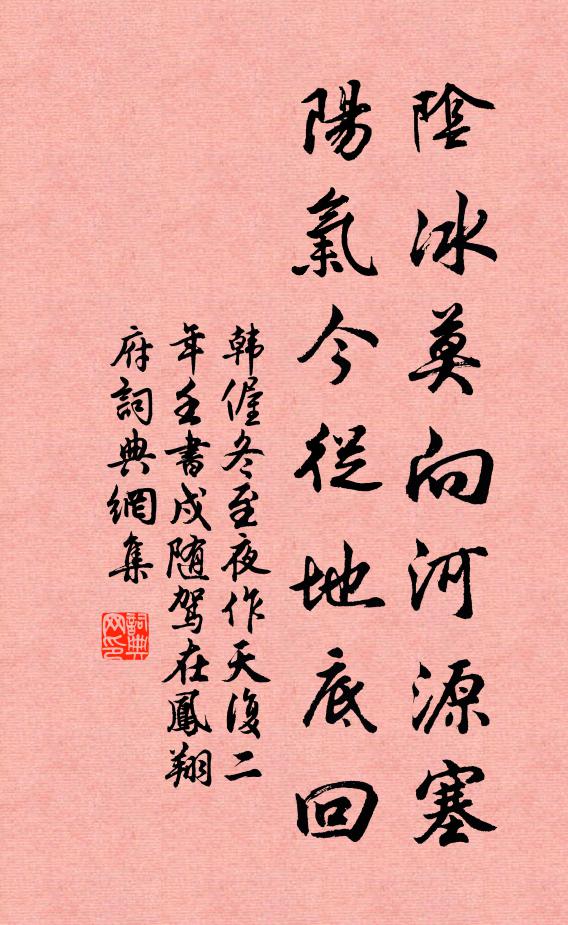 陰冰莫向河源塞
陽氣今從地底回
韩偓冬至夜作天復二
年壬書戍随駕在鳳翔
府詞典網集
詞典
网印